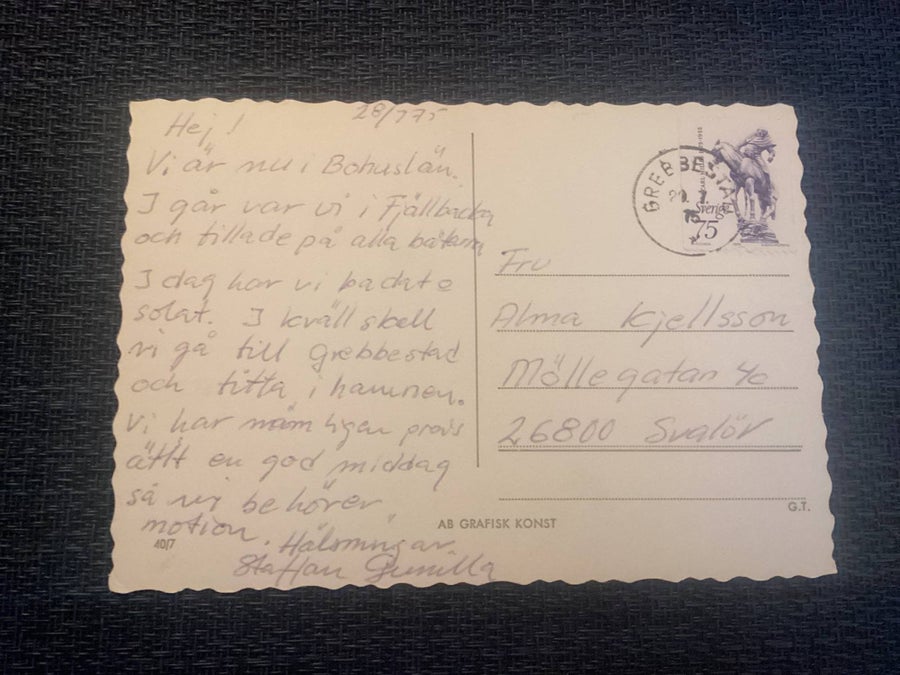 28/7 75
Hej!
Vi är nu i Bohuslän.
I går var vi i Fjällbacka
och tillade på alla båtarna
I dag har vi badat o
solat. I kväll skall
vi gå till Grebbestad
och titta i hamnen.
Vi har nämligen precis
ätit en god middag
så vi behöver
motion.
Hälsningar
Staffan Gunilla
40/7
AB GRAFISK KONST
GREBBESTAD
29. 7.
75
Sverige
75
Fru
Alma Kjellsson
Möllegatan 4c
26800 Svalöv
G.T.